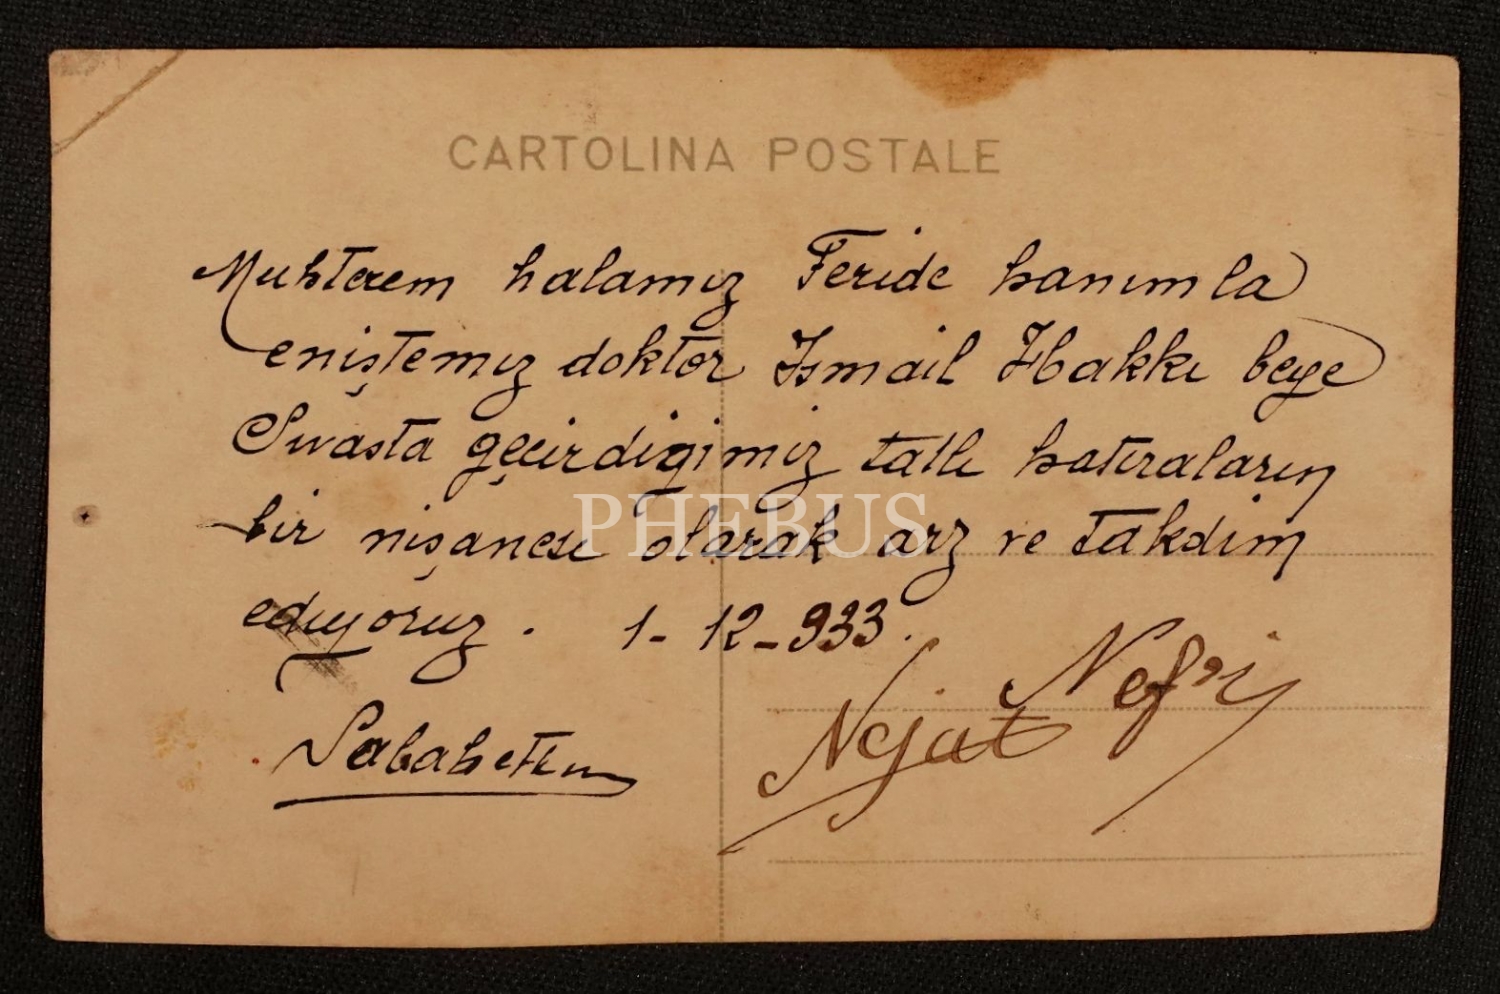 CARTOLINA POSTALE
Muhterem halamız Feride hanımla
eniştemız doktor İsmail Hakkı beye
Sıvasta geçirdiğimiz tatlı hatıraların
bir nişanesi olarak arz ve takdim
ediyoruz. 1-12-933.
Sabahettin
Nejat Nefi
PHEBUS